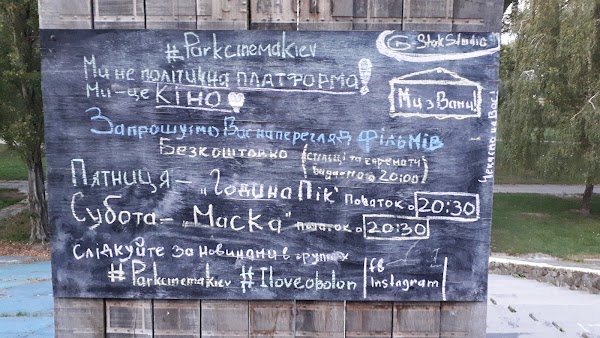 #Parkcinemakiev
StokStudio
Ми не політична ПЛАТФОРМА!
Ми-це КІНО
Ми з Вами!
Запрошуємо Вас на перегляд фільмів
Безкоштовно (стільці та каремати видаємо о 20:00)
П'ятниця – „Година Пік" початок о 20:30
Субота – „Маска" початок о 20:30
Слідкуйте за новинами в групах
#Parkcinemakiev #Iloveobolon
fb
Instagram
Чекаємо на Вас!